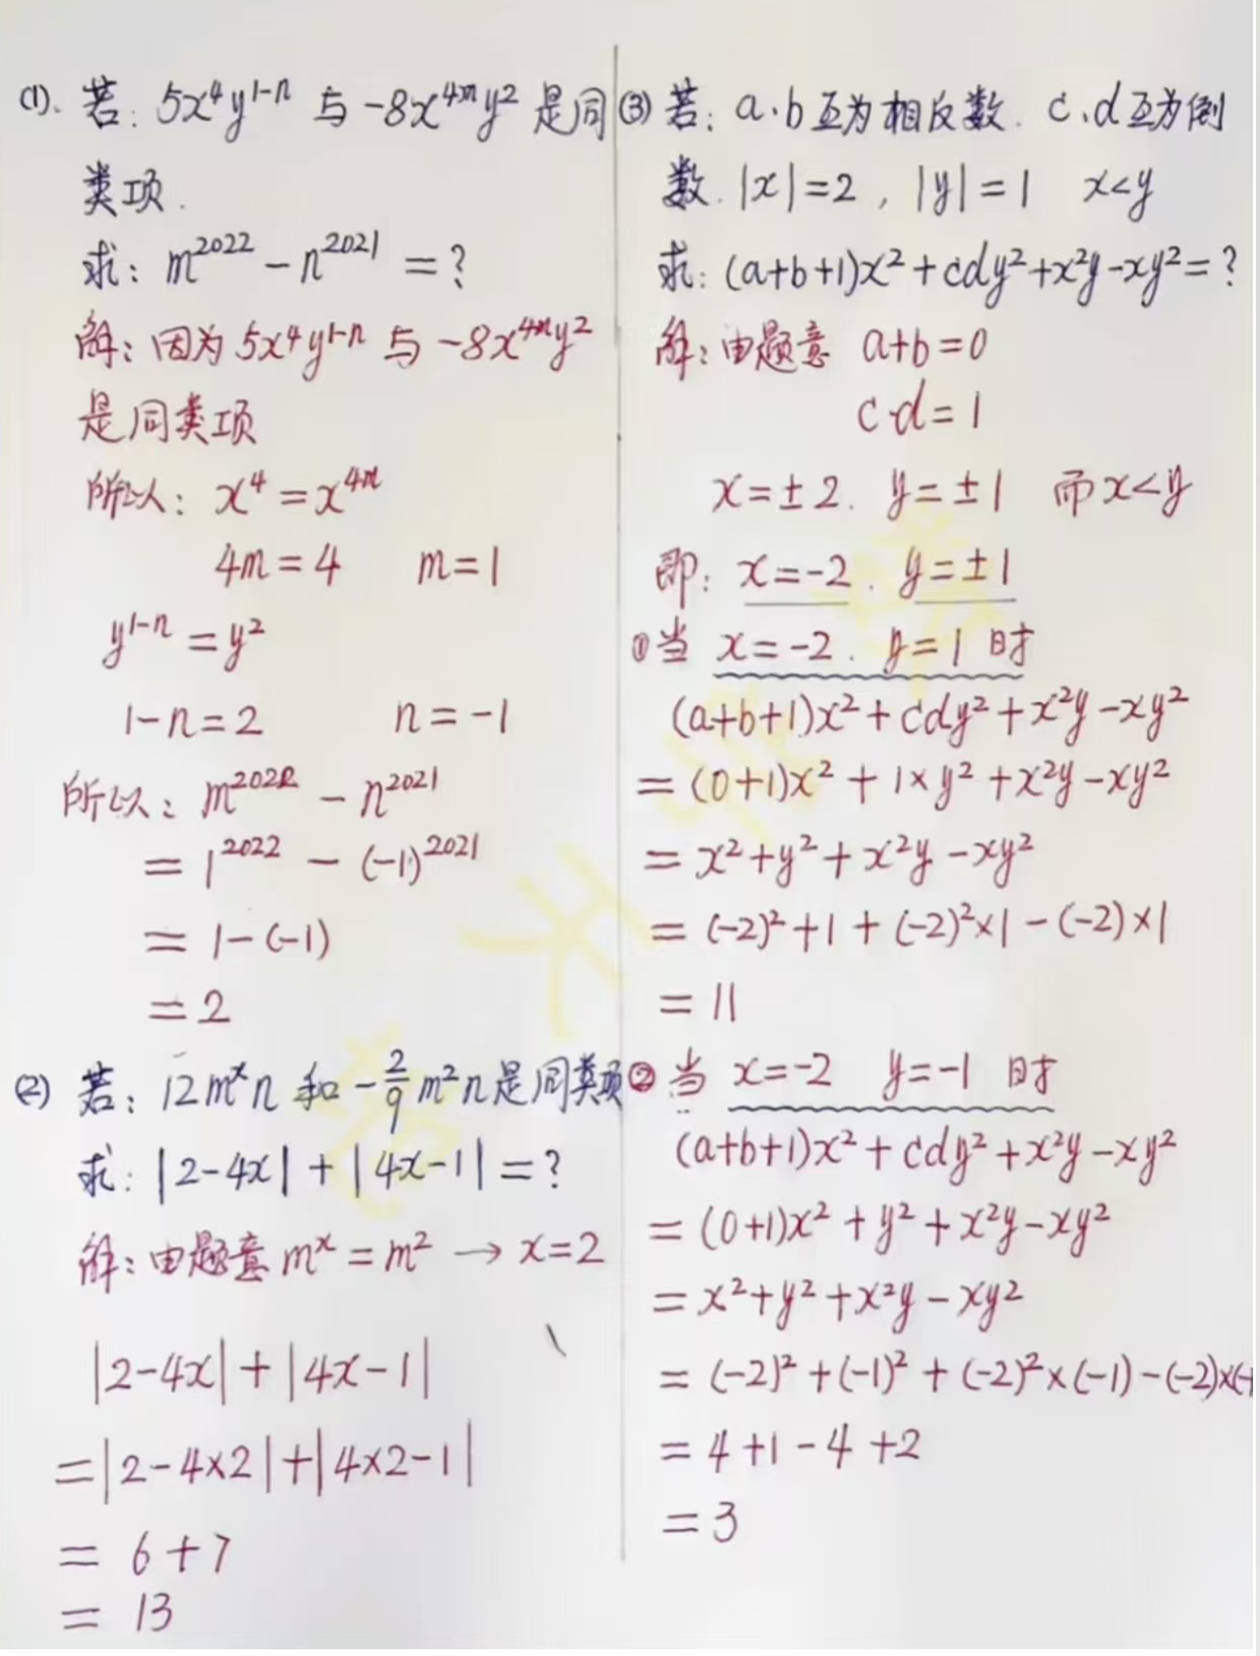 (1). 若: 5x⁴y¹⁻ⁿ 与 -8x⁴ᵐy² 是同
类项.
求: m²⁰²² - n²⁰²¹ = ?
解: 因为 5x⁴y¹⁻ⁿ 与 -8x⁴ᵐy²
是同类项
所以: x⁴ = x⁴ᵐ
4m = 4 m = 1
y¹⁻ⁿ = y²
1-n = 2 n = -1
所以: m²⁰²² - n²⁰²¹
= 1²⁰²² - (-1)²⁰²¹
= 1-(-1)
= 2
(2) 若: 12mˣn 和 -2/9 m²n 是同类项
求: |2-4x| + |4x-1| = ?
解: 由题意 mˣ = m² → x=2
|2-4x| + |4x-1|
= |2-4×2| + |4×2-1|
= 6+7
= 13
(3) 若: a·b互为相反数. c、d互为倒
数. |x|=2, |y|=1 x<y
求: (a+b+1)x²+cdy²+x²y-xy²=?
解: 由题意 a+b=0
c·d=1
x=±2. y=±1 而x<y
即: x=-2. y=±1
①当 x=-2. y=1 时
(a+b+1)x²+cdy²+x²y-xy²
= (0+1)x²+1×y²+x²y-xy²
= x²+y²+x²y-xy²
= (-2)²+1+(-2)²×1-(-2)×1
= 11
②当 x=-2 y=-1 时
(a+b+1)x²+cdy²+x²y-xy²
= (0+1)x²+y²+x²y-xy²
= x²+y²+x²y-xy²
= (-2)²+(-1)²+(-2)²×(-1)-(-2)×(-1
= 4+1-4+2
= 3